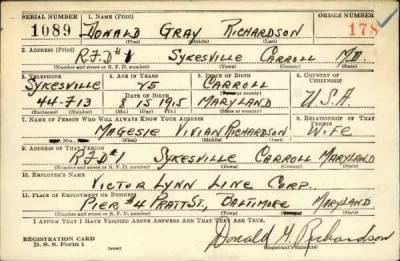 SERIAL NUMBER 1. NAME (Print) ORDER NUMBER
1089 DONALD GRAY RICHARDSON 178
(First) (Middle) (Last)
2. ADDRESS (Print)
R.F.D #1 SYKESVILLE CARROLL MD.
(Number and street or R. F. D. number) (Town) (County) (State)
3. TELEPHONE 4. AGE IN YEARS 5. PLACE OF BIRTH 6. COUNTRY OF CITIZENSHIP
SYKESVILLE CARROLL
DATE OF BIRTH U.S.A.
44-F-13 8 15 1915 MARYLAND
(Exchange) (Number) (Mo.) (Day) (Yr.) (State or country)
7. NAME OF PERSON WHO WILL ALWAYS KNOW YOUR ADDRESS 8. RELATIONSHIP OF THAT PERSON
MAGESIE VIVIAN RICHARDSON WIFE
(First) (Middle) (Last)
9. ADDRESS OF THAT PERSON
RFD #1 SYKESVILLE CARROLL MARYLAND
(Number and street or R. F. D. number) (Town) (County) (State)
10. EMPLOYER'S NAME
VICTOR LYNN LINE CORP.
11. PLACE OF EMPLOYMENT OR BUSINESS
PIER #4 PRATT ST., BALTIMORE MARYLAND
(Number and street or R. F. D. number) (Town) (County) (State)
I AFFIRM THAT I HAVE VERIFIED ABOVE ANSWERS AND THAT THEY ARE TRUE.
REGISTRATION CARD Donald G. Richardson
D. S. S. Form 1 (over) (Registrant's signature)